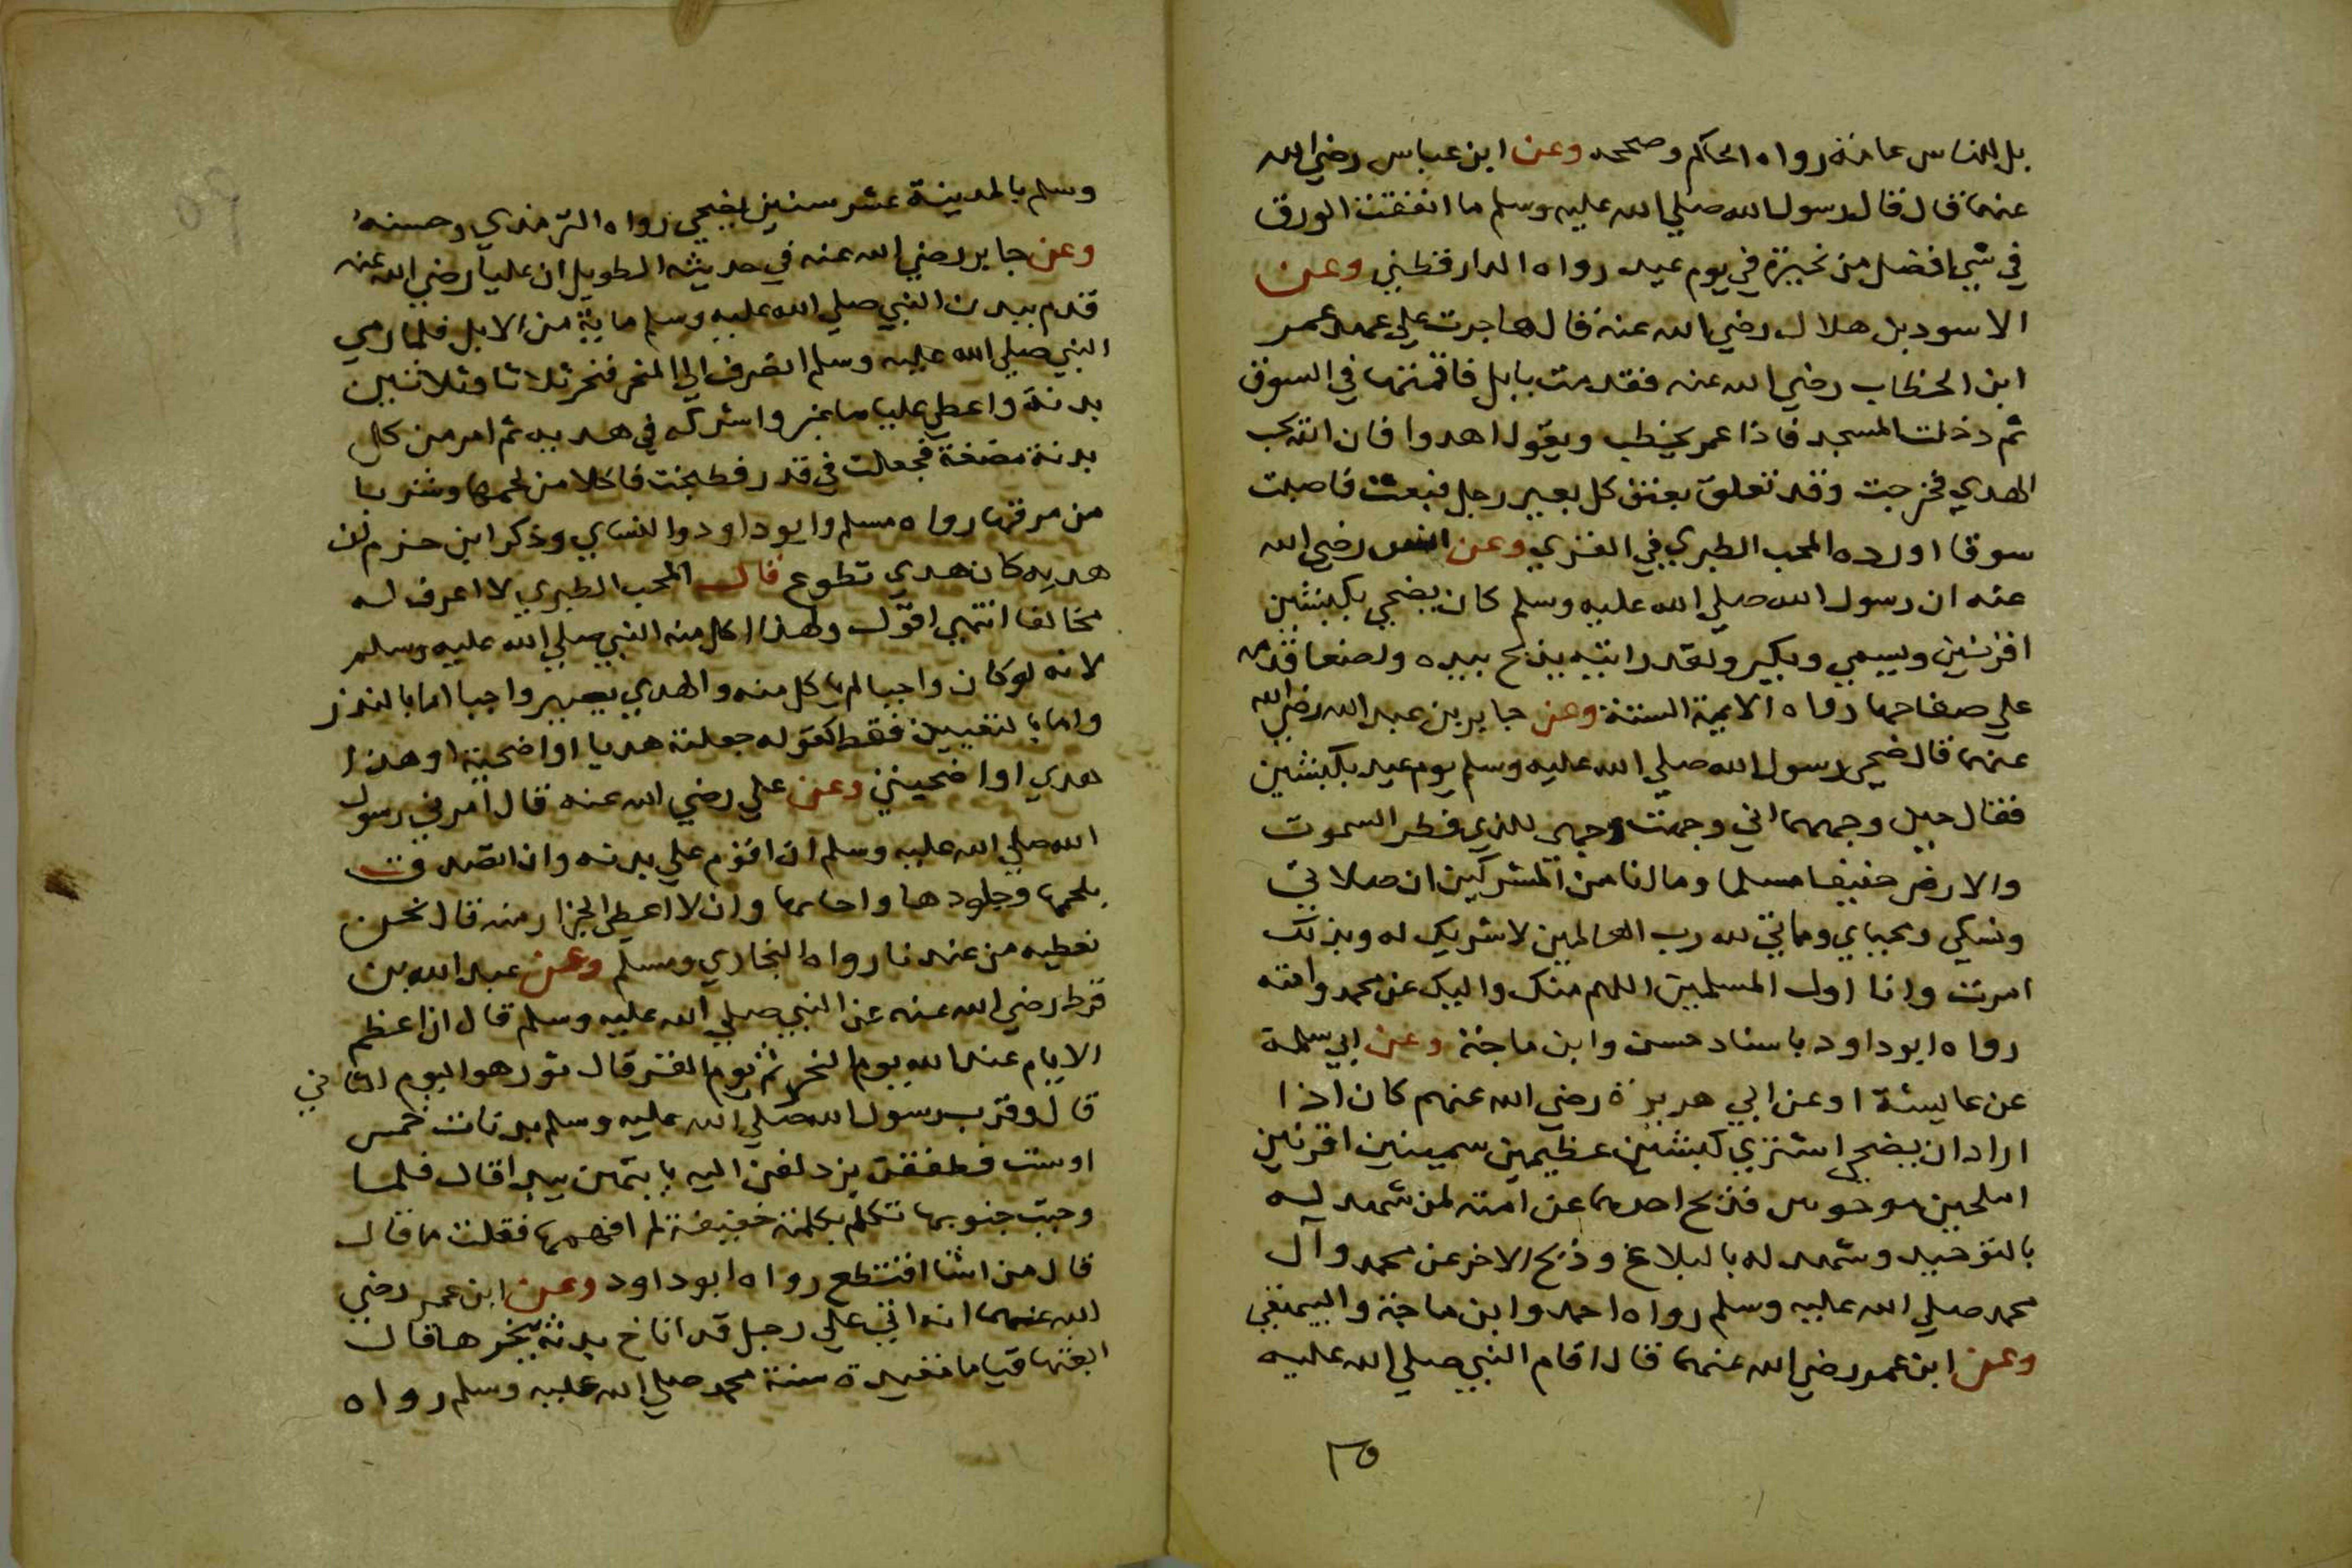 بل للناس عامة رواه الحاكم وصححه وعن ابن عباس رضي الله
عنهما قال قال رسول الله صلي الله عليه وسلم ما انفقت الورق
في شي افضل من نحيرة في يوم عيد رواه الدارقطني وعن
الاسود بل هلال رضي الله عنه قال هاجرت علي عهد عمر
ابن الخطاب رضي الله عنه فقدمت بابل فاقمتها في السوق
ثم دخلت المسجد فاذا عمر يخطب ويقول اهدوا فان الله يحب
الهدي فخرجت وقد تعلق بعنق كل بعير رجل فبعت فاصبت
سوقا اورده المحب الطبري في القري وعن انس رضي الله
عنه ان رسول الله صلي الله عليه وسلم كان يضحي بكبشين
اقرنين ويسمي ويكبر ولقد رايته يذبح بيده واضعا قدمه
علي صفاحهما رواه الايمة الستة وعن جابر بن عبد الله رضي الله
عنهما قال ضحي رسول الله صلي الله عليه وسلم يوم عيد بكبشين
فقال حين وجههما اني وجهت وجهي للذي فطر السموت
والارض حنيفا مسلما وما انا من المشركين ان صلاتي
ونسكي ومحياي ومماتي لله رب العالمين لا شريك له وبذلك
امرت وانا اول المسلمين اللهم منك واليك عن محمد وامته
رواه ابو داود باسناد حسن وابن ماجة وعن ابي سلمة
عن عاييشة اوعن ابي هريرة رضي الله عنهم كان اذا
اراد ان يضحي اشتري كبشين عظيمين سمينين اقرنين
املحين موجوين فذبح احدهما عن امته لمن شهد له
بالتوحيد وشهد له بالبلاغ وذبح الاخر عن محمد وآل
محمد صلي الله عليه وسلم رواه احمد وابن ماجة والبيهقي
وعن ابن عمر رضي الله عنهما قال اقام النبي صلي الله عليه
٣٥
٥٩
وسلم بالمدينة عشر سنين يضحي رواه الترمذي وحسنه
وعن جابر رضي الله عنه في حديثه الطويل ان عليا رضي الله عنه
قدم ببدن النبي صلي الله عليه وسلم ماية من الابل فلما رمي
النبي صلي الله عليه وسلم انصرف الي المنحر فنحر ثلاثا وثلاثين
بدنة واعطي عليا ما غبر واشركه في هديه ثم امر من كل
بدنة بضعة فجعلت في قدر فطبخت فاكلا من لحمها وشربا
من مرقها رواه مسلم وابو داود والنساي وذكر ابن حزم ان
هديه كان هدي تطوع قال المحب الطبري لا اعرف له
مخالفا انتهي اقول ولهذا اكل منه النبي صلي الله عليه وسلم
لانه لو كان واجبا لم ياكل منه والهدي يصير واجبا اما بالنذر
واما بالتعيين فقط كقوله جعلته هديا او اضحية او هذا
هدي او اضحيتي وعن علي رضي الله عنه قال امرني رسول
الله صلي الله عليه وسلم ان اقوم علي بدنه وان اتصدق
بلحمها وجلودها واجلتها وان لا اعطي الجزار منه قال نحن
نعطيه من عندنا رواه البخاري ومسلم وعن عبد الله بن
قرط رضي الله عنه عن النبي صلي الله عليه وسلم قال ان اعظم
الايام عند الله يوم النحر ثم يوم القر قال ثور هو اليوم الثاني
قال وقرب رسول الله صلي الله عليه وسلم بدنات خمس
اوست فطفقن يزدلفن اليه بايتهن يبدا قال فلما
وجبت جنوبها تكلم بكلمة خفيفة لم افهمها فقلت ما قال
قال من شا اقتطع رواه ابو داود وعن ابن عمر رضي
الله عنهما انه اتي علي رجل قد اناخ بدنة ينحرها قال
ابعثها قياما مقيدة سنة محمد صلي الله عليه وسلم رواه